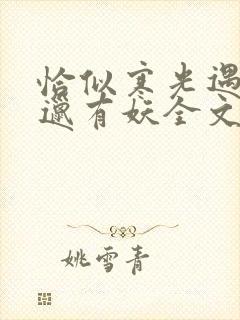 恰似寒光遇
邋有妖全文
姚雪青